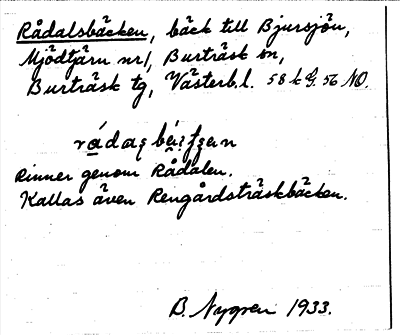 Rådalsbäcken, bäck till Bjursjön,
Mjödtjärn nr 1, Burträsk sn,
Burträsk tg, Västerb. l. 58 k G. 56 NO.
Rinner genom Rådalen.
Kallas även Rengårdsträskbäcken.
B. Nygren 1933.